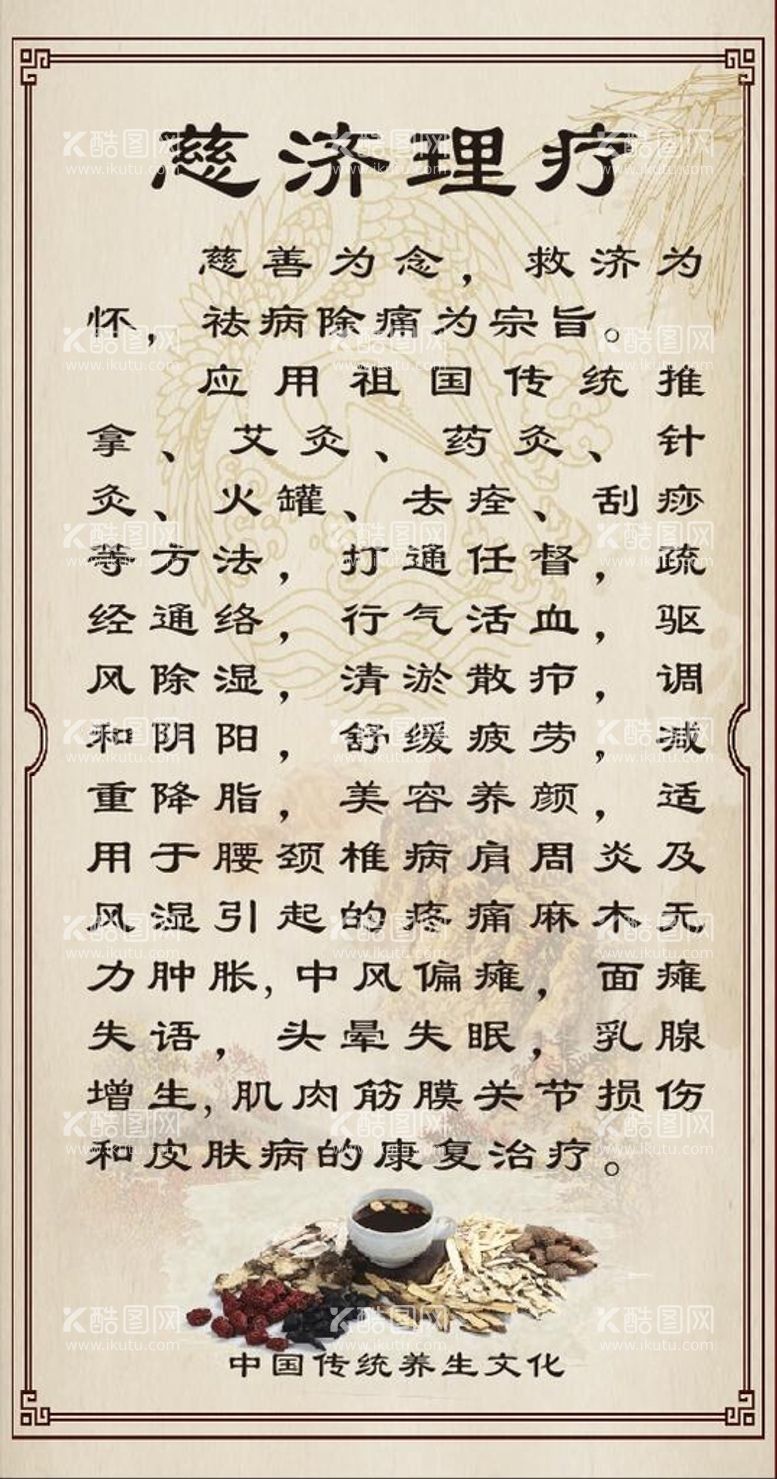 慈济理疗
慈善为念，救济为
怀，祛病除痛为宗旨。
应用祖国传统推
拿、艾灸、药灸、针
灸、火罐、去痊、刮痧
等方法，打通任督，疏
经通络，行气活血，驱
风除湿，清淤散疖，调
和阴阳，舒缓疲劳，减
重降脂，美容养颜，适
用于腰颈椎病肩周炎及
风湿引起的疼痛麻木无
力肿胀，中风偏瘫，面瘫
失语，头晕失眠，乳腺
增生，肌肉筋膜关节损伤
和皮肤病的康复治疗。
中国传统养生文化
酷图网
www.ikutu.com